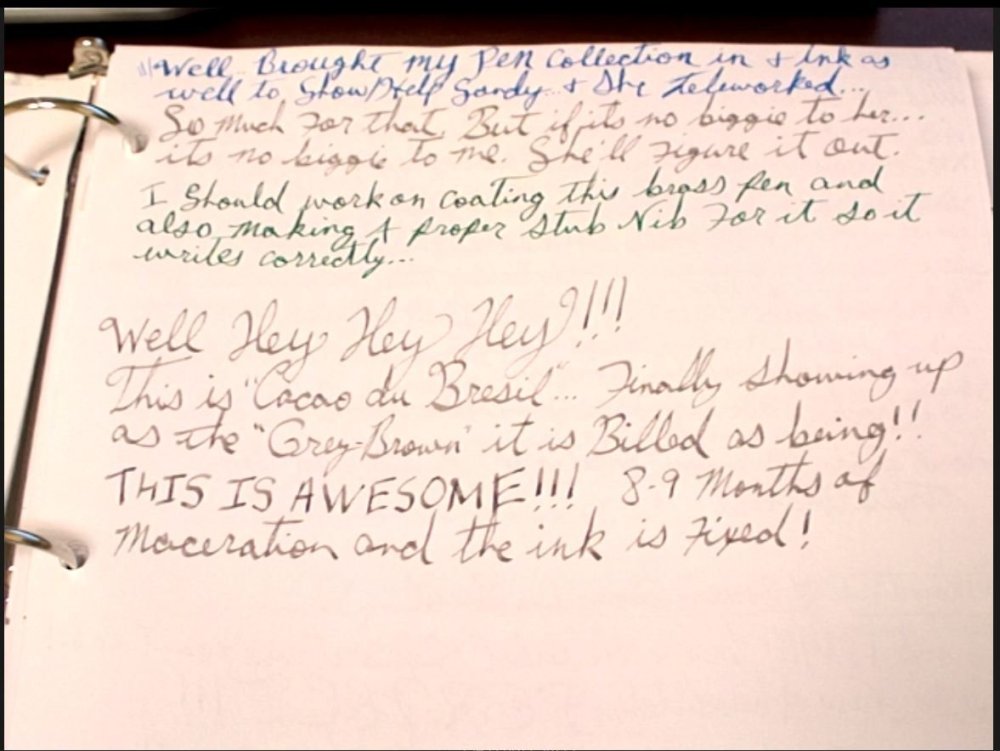 Well Brought my Pen Collection in + Ink as
well to Show/Help Sandy.. + She Teleworked...
So Much For that, But if its no biggie to her...
its no biggie to me. She'll Figure it out.
I Should work on coating this brass pen and
also making A proper Stub Nib For it so it
writes correctly...
Well Hey Hey Hey!!!!
This is "Cacao du Bresil"... Finally showing up
as the "Grey-Brown" it is Billed as being!!
THIS IS AWESOME!!! 8-9 Months of
Maceration and the ink is Fixed!